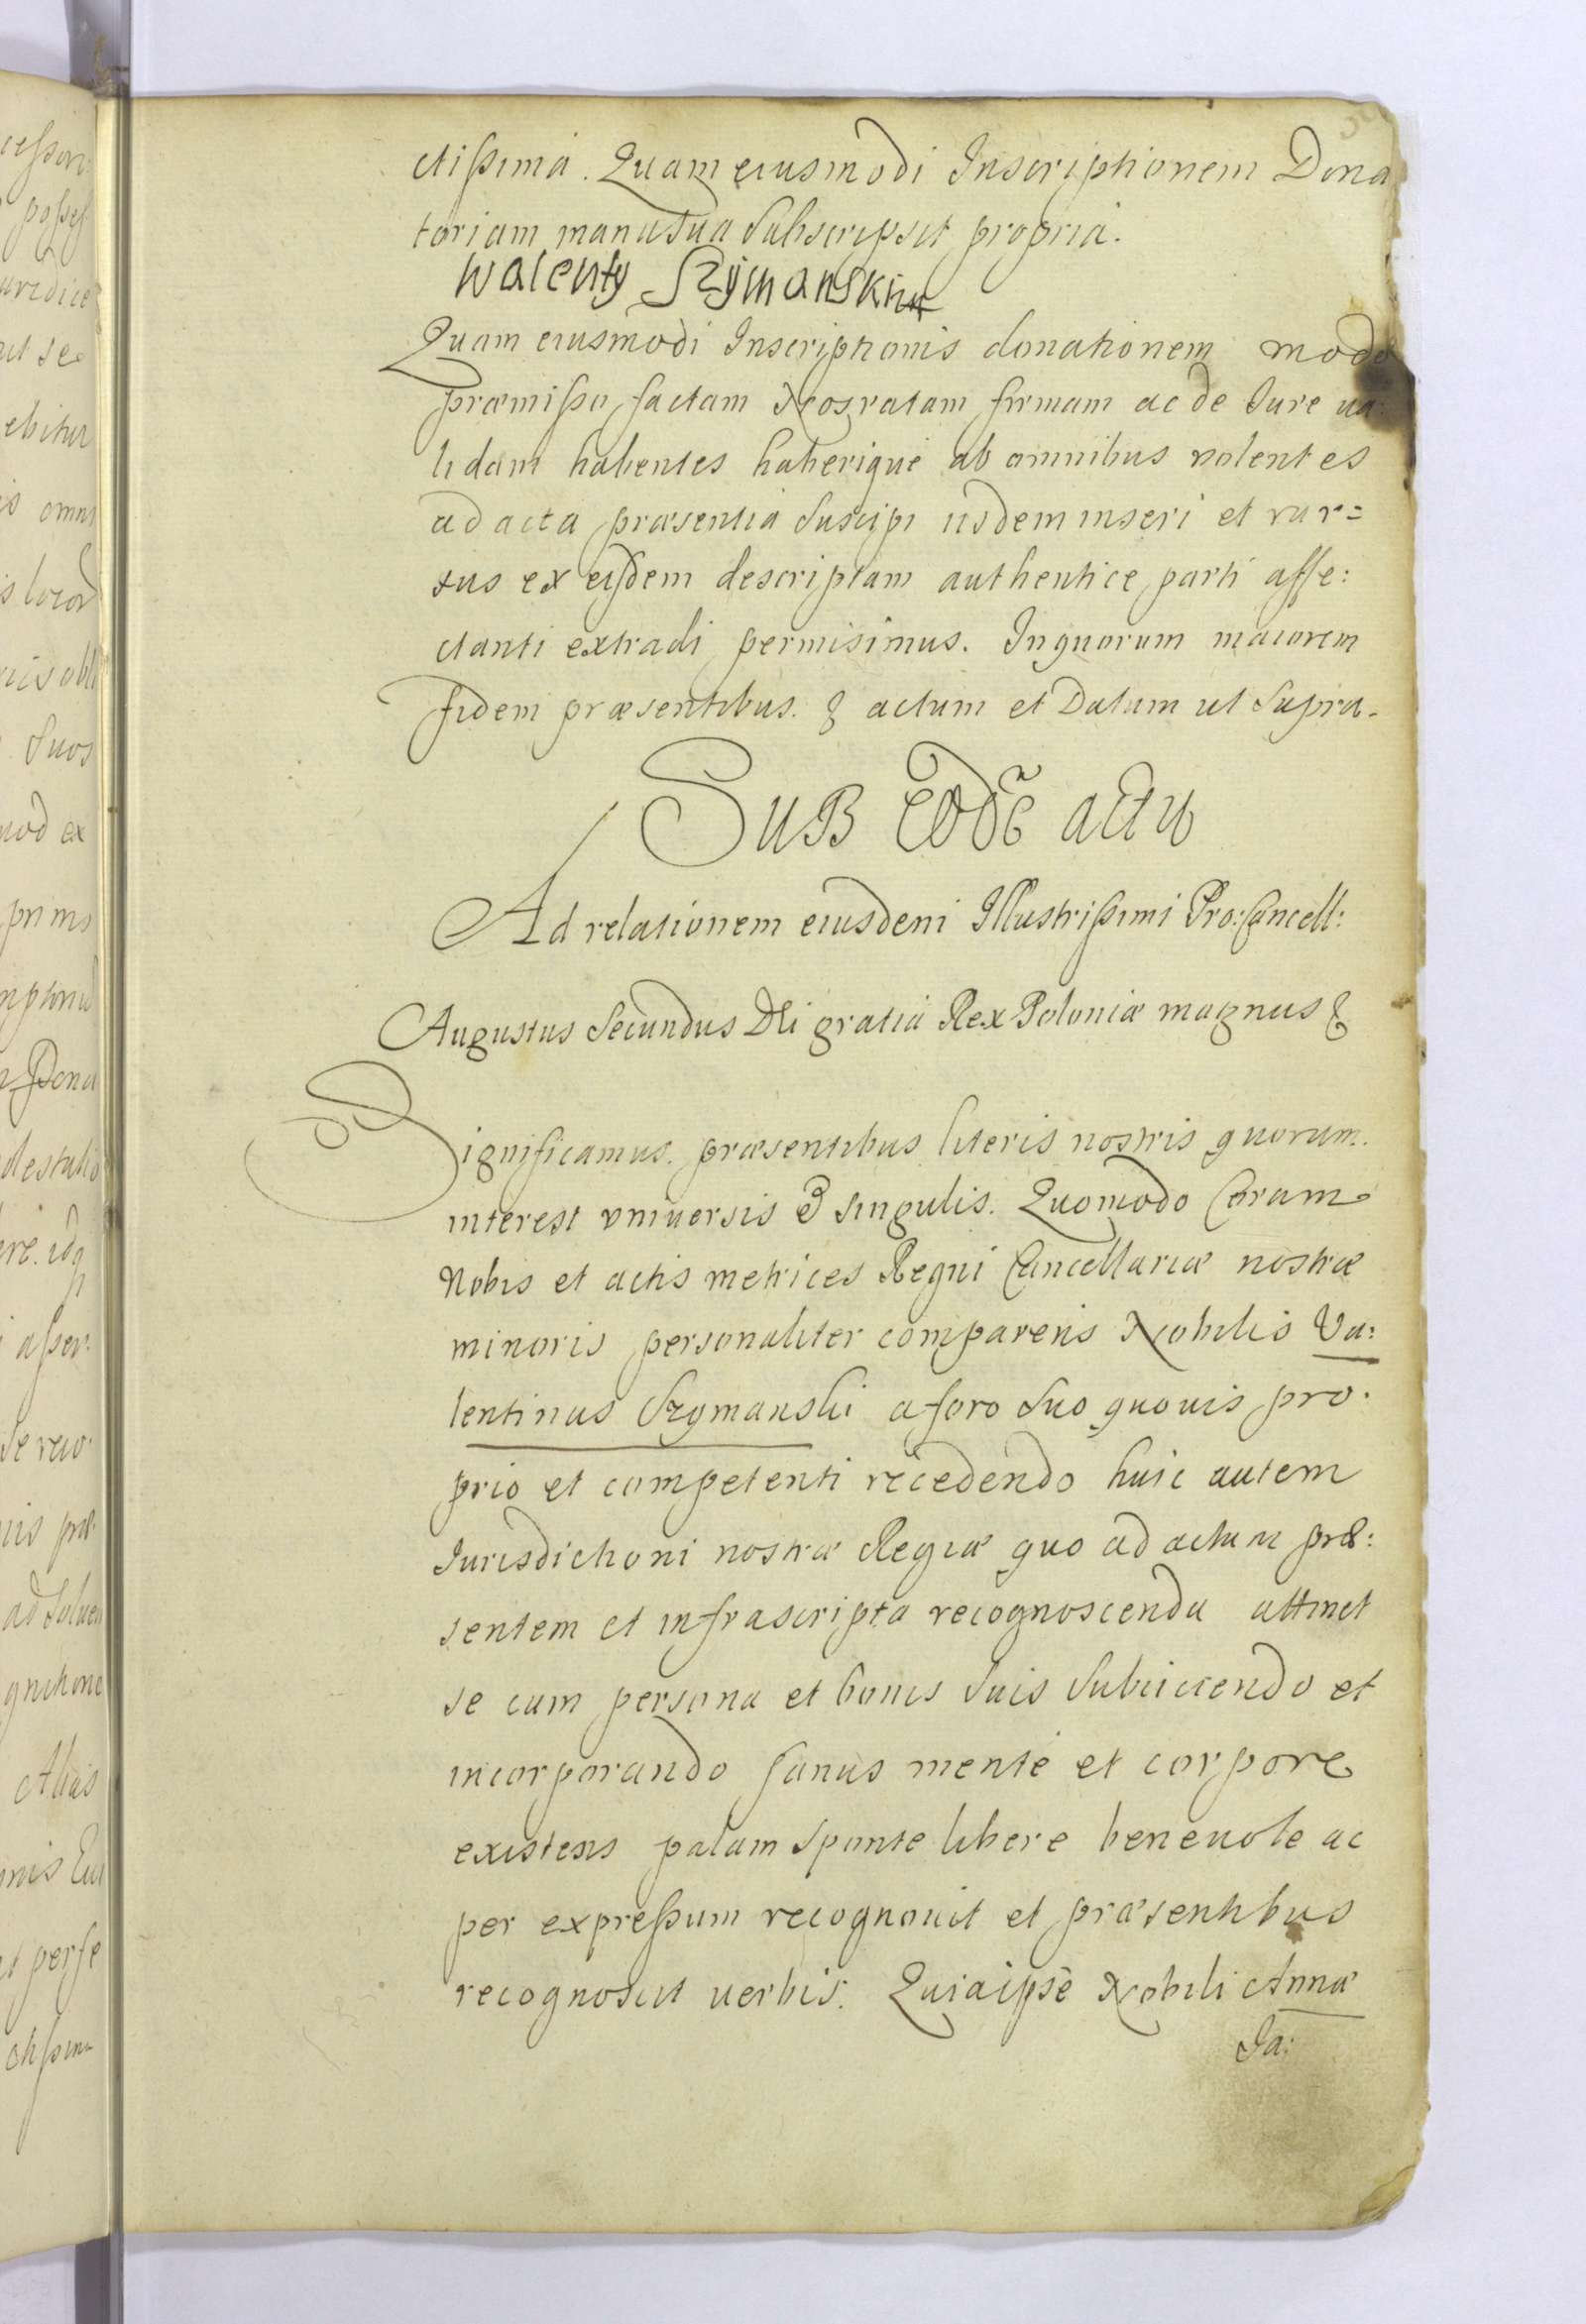 ctissima. Quam eiusmodi Inscriptionem Dona
toriam manu sua Subscripsit propria.
Walenty Szÿmanski
Quam eiusmodi Inscriptionis donationem modo
præmisso factam Nos ratam firmam ac de Iure va:
lidam habentes haberique ab omnibus volentes
ad acta præsentia Suscipi iisdem inseri et rur=
sus ex eisdem descriptam authentice parti affe:
ctanti extradi permisimus. In quorum maiorem
fidem præsentibus. & actum et Datum ut Supra.
SUB EODE͂ ACTU
Ad relationem eiusdem Illustrissimi Pro:Cancell:
Augustus Secundus DEi gratia Rex Poloniæ magnus &
Significamus. præsentibus literis nostris quorum.
interest universis & singulis. Quomodo Coram
Nobis et actis metrices Regni Cancellariæ nostræ
minoris personaliter comparens Nobilis Va:
lentinus Szymanski a foro Suo quovis pro.
prio et competenti recedendo huic autem
Iurisdictioni nostræ Regiæ quo ad actum præ:
sentem et infrascripta recognoscenda attinet
se cum persona et bonis Suis Subiiciendo et
incorporando sanus mente et corpore
existens palam sponte libere benevole ac
per expressum recognovit et præsentibus
recognoscit verbis. Quia ipse Nobili Annæ
Ia:
cessori:
posses
uridice
ut se
ebitur
is omni
Suos
uod ex
primo
re. idq
i asser:
is præ
Alias
nis Eui
t perfe
ctissima